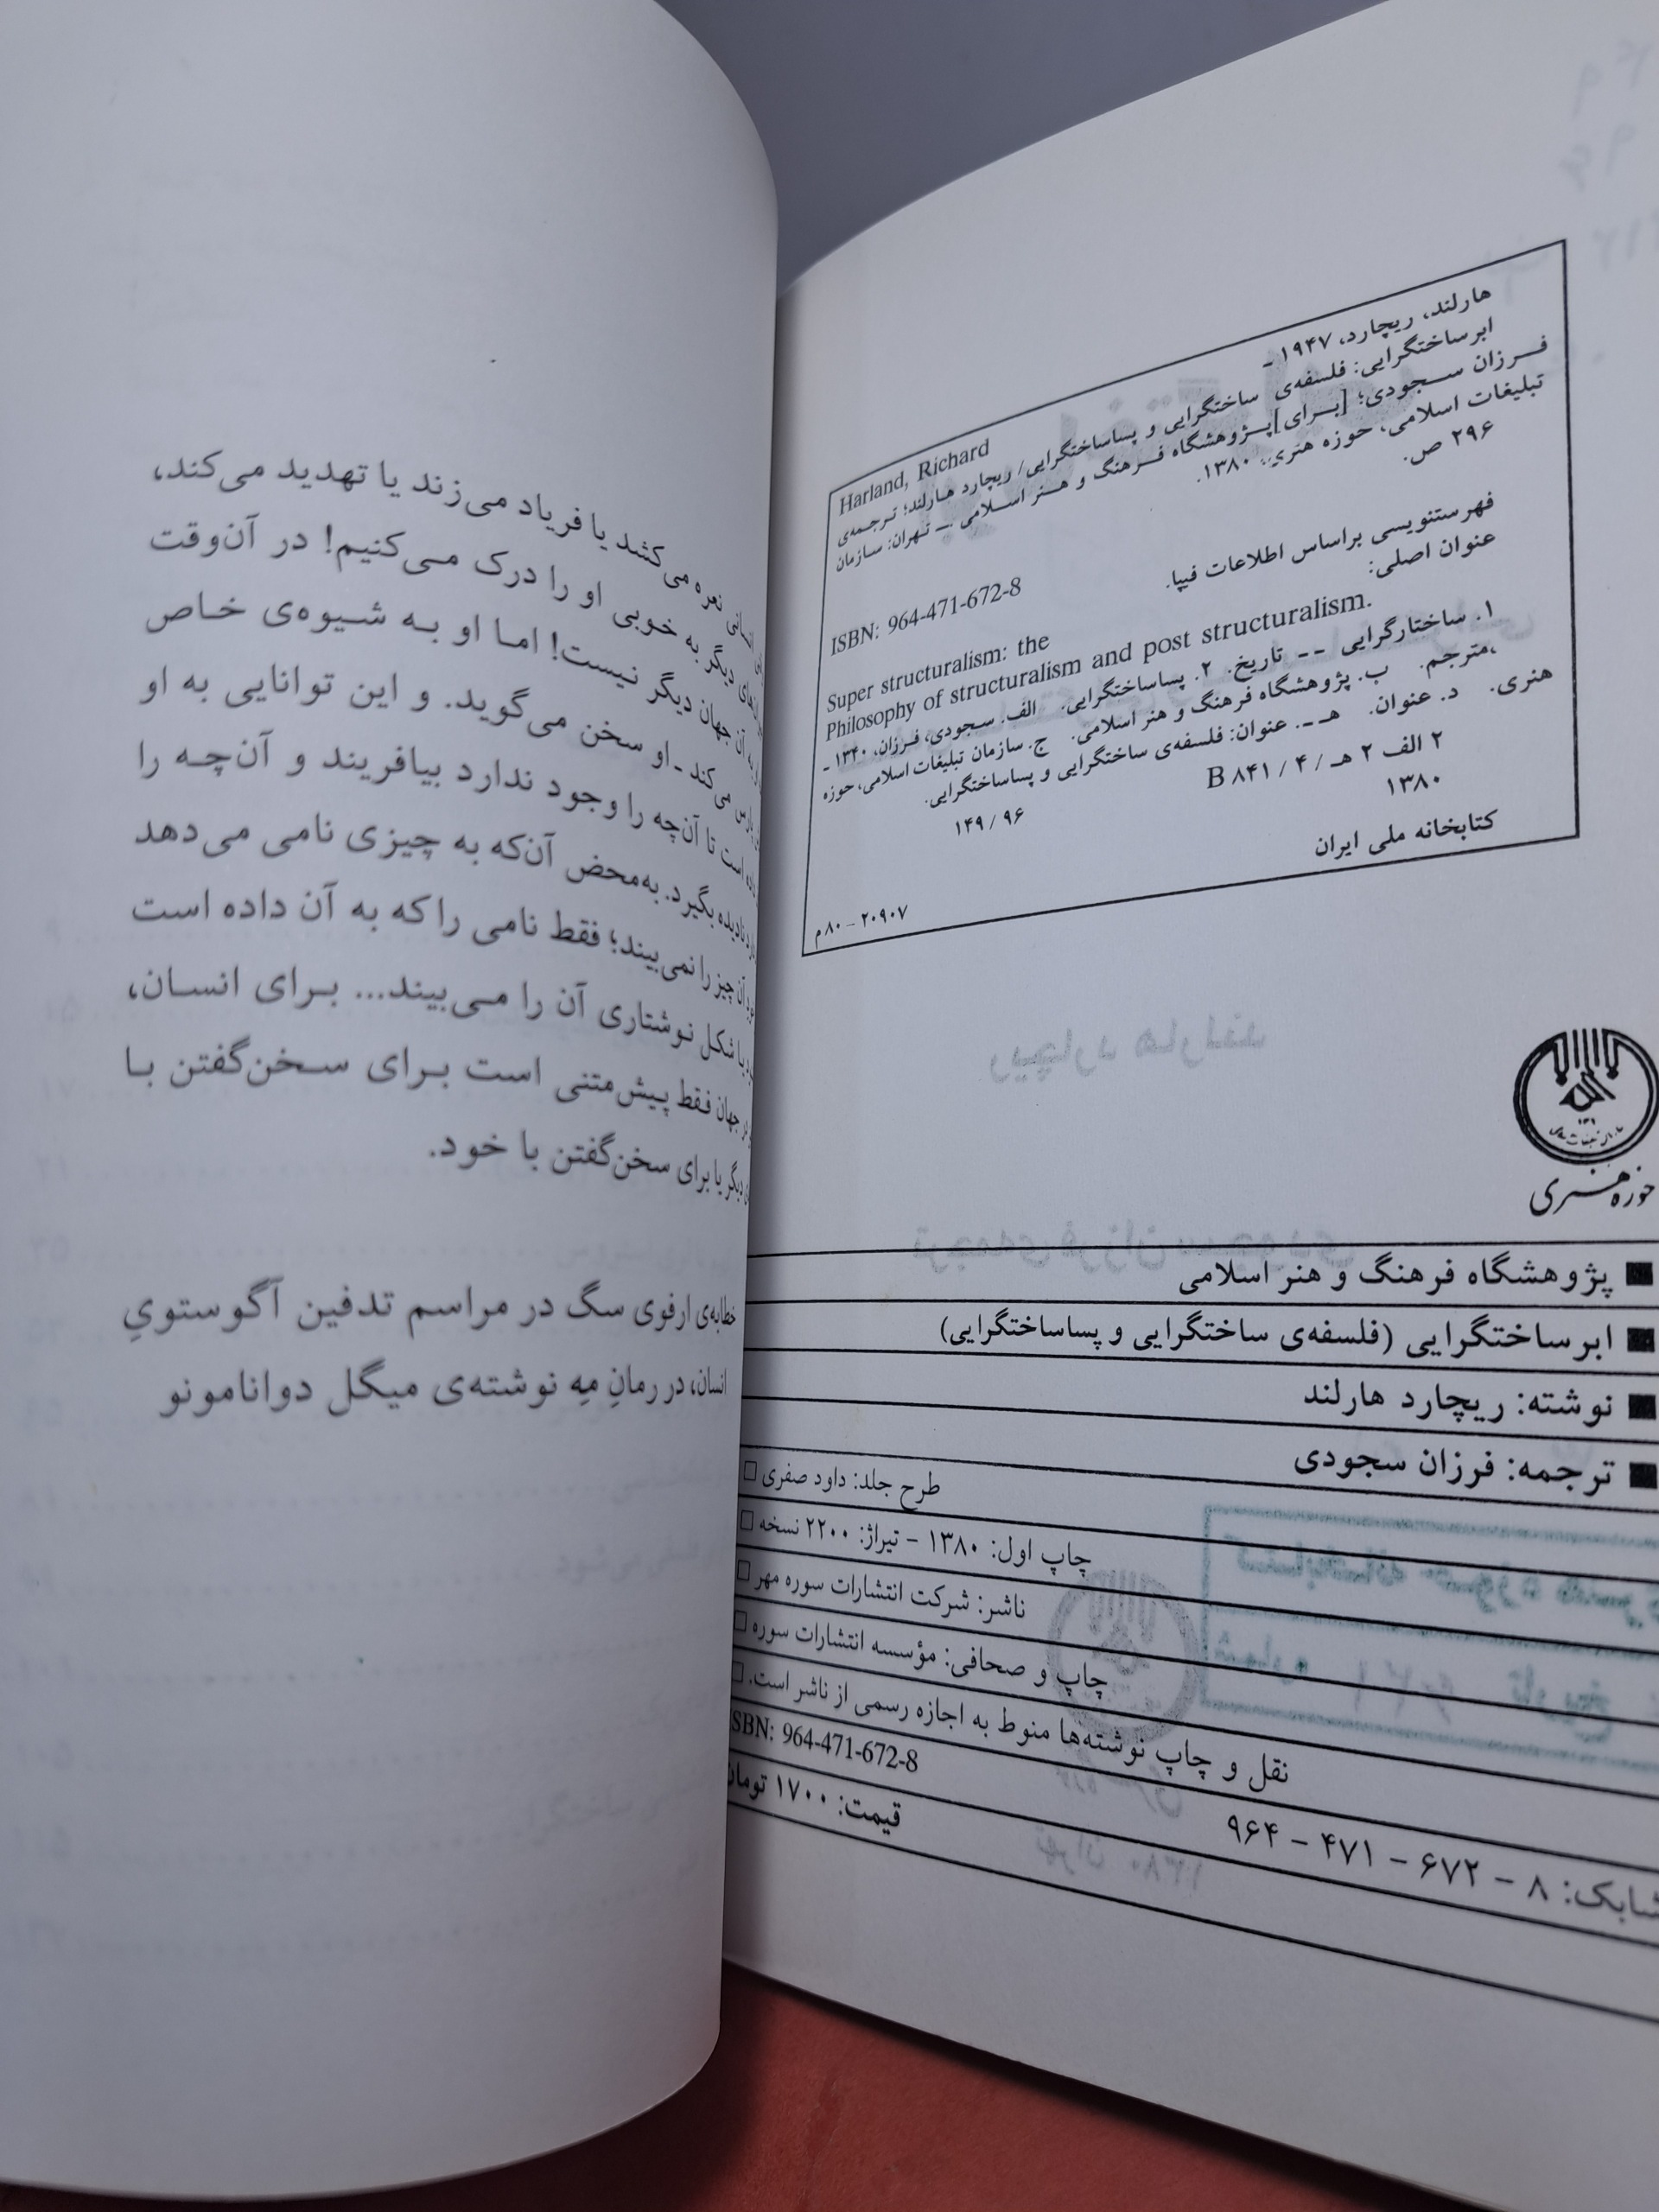 هارلند، ریچارد، ۱۹۴۷ -
Harland, Richard
ابرساختگرایی: فلسفه‌ی ساختگرایی و پساساختگرایی/ ریچارد هارلند؛ ترجمه‌ی
فرزان سجودی؛ [برای] پژوهشگاه فرهنگ و هنر اسلامی. ــ تهران: سازمان
تبلیغات اسلامی، حوزه هنری، ۱۳۸۰.
۲۹۶ ص.
ISBN: 964-471-672-8
فهرستنویسی براساس اطلاعات فیپا.
عنوان اصلی:
Super structuralism: the
Philosophy of structuralism and post structuralism.
۱. ساختارگرایی -- تاریخ. ۲. پساساختگرایی. الف. سجودی، فرزان، ۱۳۴۰ -
،مترجم. ب. پژوهشگاه فرهنگ و هنر اسلامی. ج. سازمان تبلیغات اسلامی، حوزه
هنری. د. عنوان. هـ. عنوان: فلسفه‌ی ساختگرایی و پساساختگرایی.
۲ الف ۲ هـ / ۴ / B ۸۴۱
۱۴۹ / ۹۶
۱۳۸۰
کتابخانه ملی ایران
۲۰۹۰۷ – ۸۰م
حوزه هنری
پژوهشگاه فرهنگ و هنر اسلامی
ابرساختگرایی (فلسفه‌ی ساختگرایی و پساساختگرایی)
نوشته: ریچارد هارلند
ترجمه: فرزان سجودی
طرح جلد: داود صفری
چاپ اول: ۱۳۸۰ – تیراژ: ۲۲۰۰ نسخه
ناشر: شرکت انتشارات سوره مهر
چاپ و صحافی: مؤسسه انتشارات سوره
نقل و چاپ نوشته‌ها منوط به اجازه رسمی از ناشر است.
SBN: 964-471-672-8
شابک: ۸ – ۶۷۲ – ۴۷۱ – ۹۶۴
قیمت: ۱۷۰۰ تومان
نعره می‌کشد یا فریاد می‌زند یا تهدید می‌کند،
دیگر به خوبی او را درک می‌کنیم! در آن‌وقت
به آن جهان دیگر نیست! اما او به شیوه‌ی خاص
پارس می‌کند ـ او سخن می‌گوید. و این توانایی به او
است تا آن‌چه را وجود ندارد بیافریند و آن‌چه را
نادیده بگیرد. به‌محض آن‌که به چیزی نامی می‌دهد
آن چیز را نمی‌بیند؛ فقط نامی را که به آن داده است
یا شکل نوشتاری آن را می‌بیند... برای انسان،
جهان فقط پیش‌متنی است برای سخن‌گفتن با
دیگر یا برای سخن‌گفتن با خود.
خطابه‌ی ارفوی سگ در مراسم تدفین آگوستویِ
انسان، در رمانِ مِه نوشته‌ی میگل دوانامونو